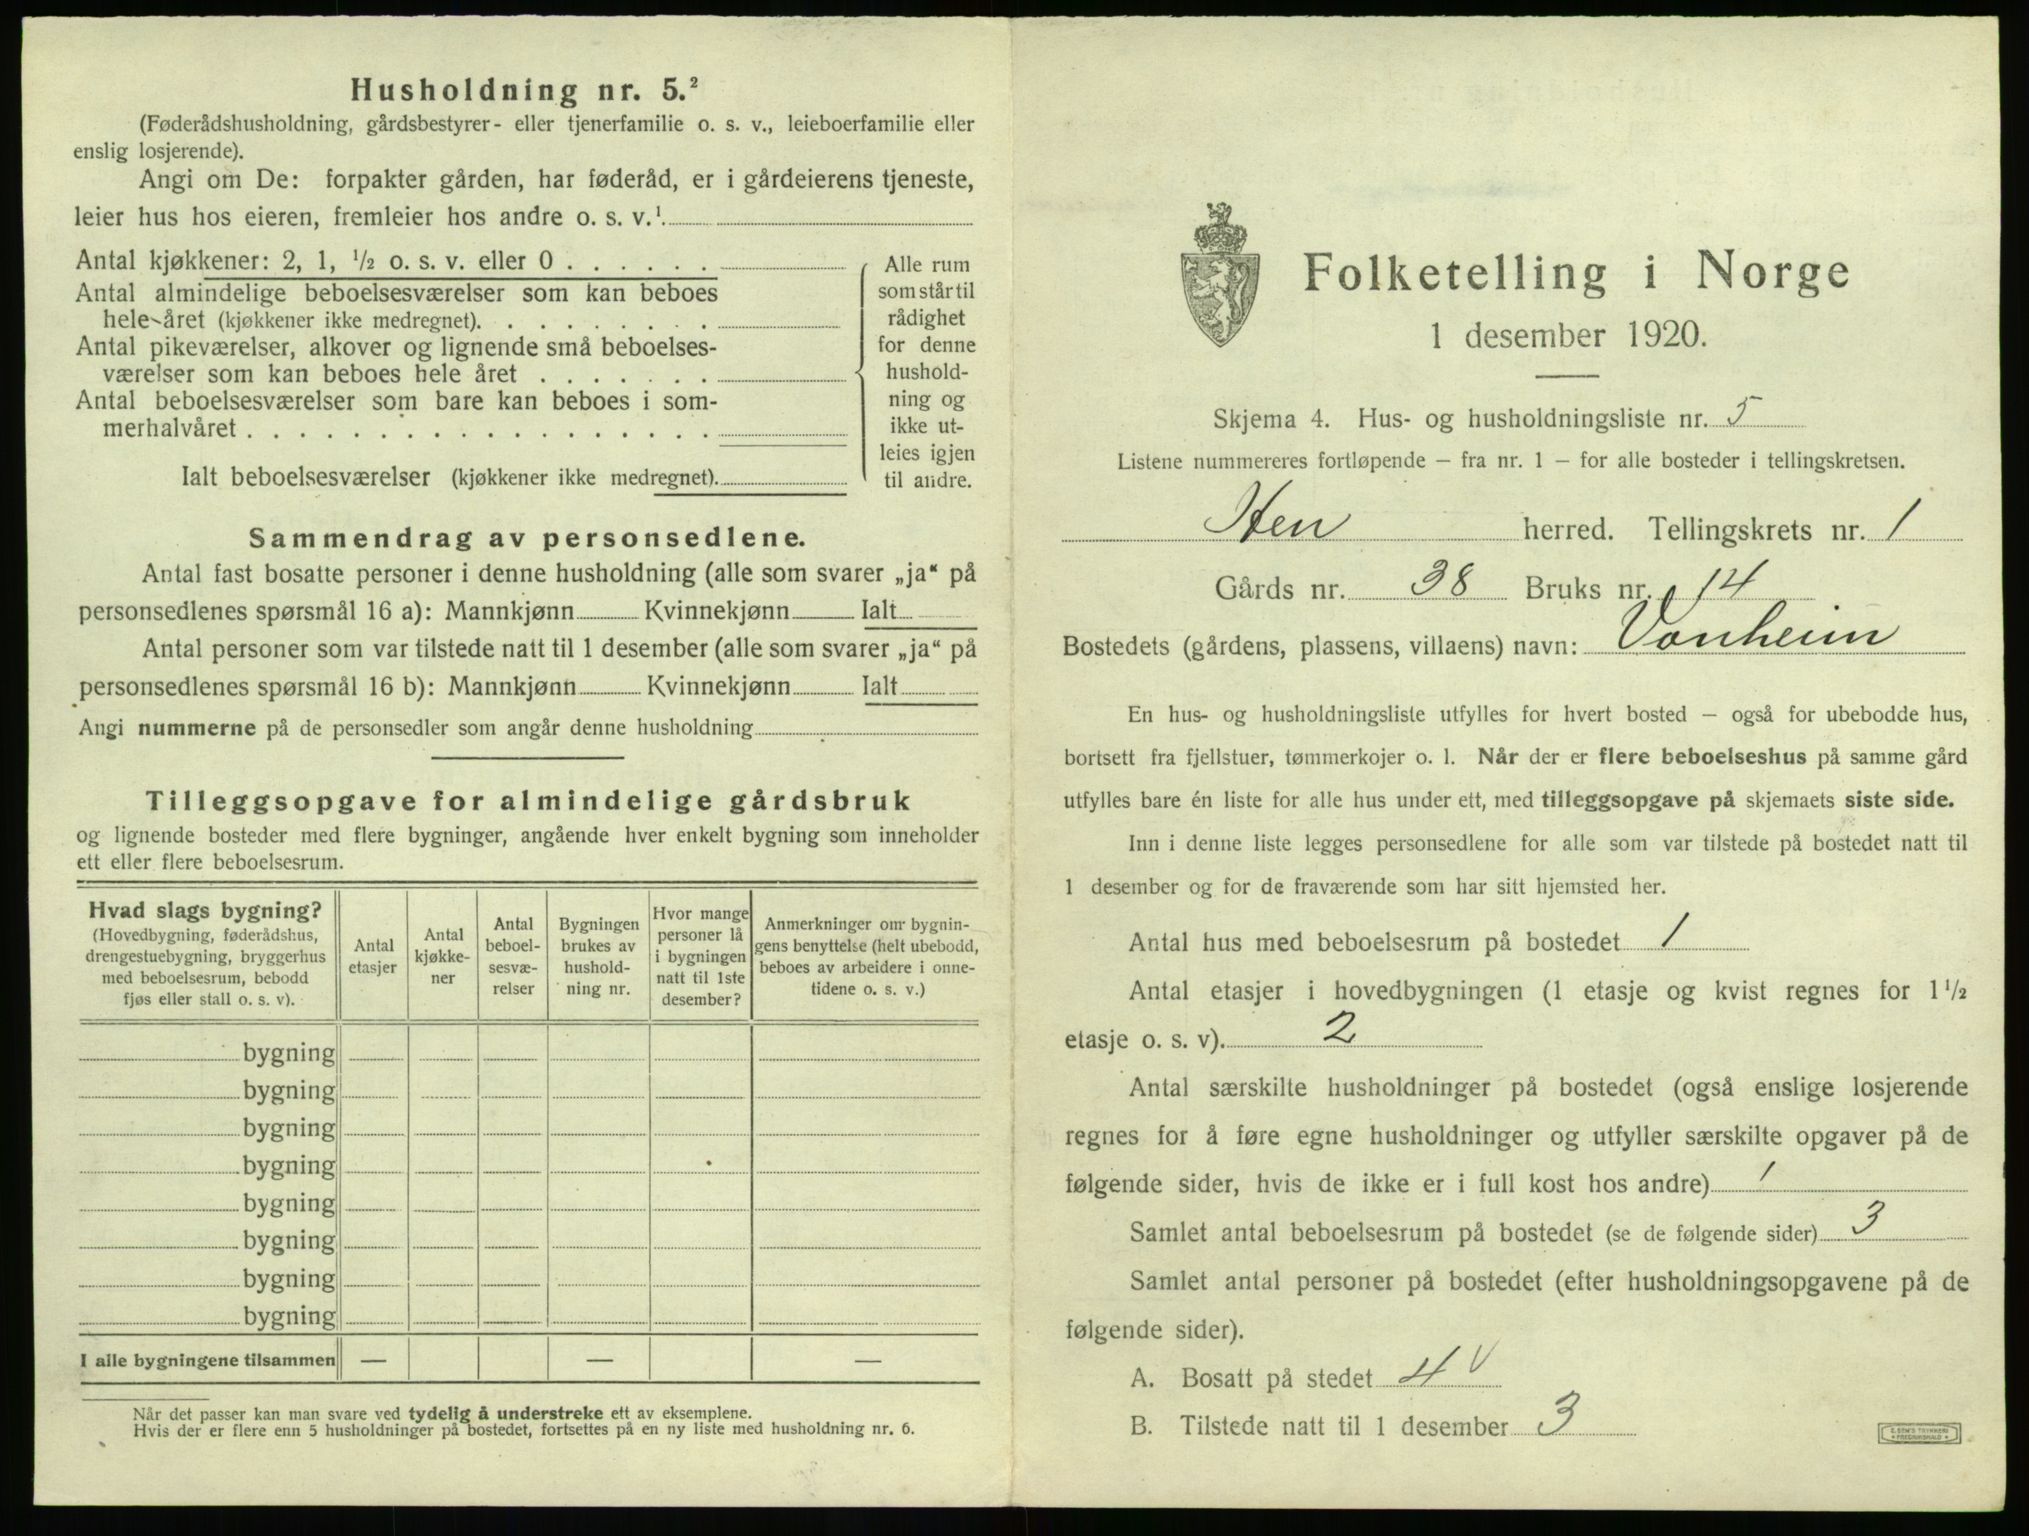 Husholdning nr. 5.²
(Føderådshusholdning, gårdsbestyrer- eller tjenerfamilie o. s. v., leieboerfamilie eller
enslig losjerende).
Angi om De: forpakter gården, har føderåd, er i gårdeierens tjeneste,
leier hus hos eieren, fremleier hos andre o. s. v.¹
Antal kjøkkener: 2, 1, ½ o. s. v. eller 0 . . . . . .
Antal almindelige beboelsesværelser som kan beboes
hele året (kjøkkener ikke medregnet). . . . . . . . .
Antal pikeværelser, alkover og lignende små beboelses-
værelser som kan beboes hele året . . . . . . .
Antal beboelsesværelser som bare kan beboes i som-
merhalvåret . . . . . . . . . . . . . . . . . .
Ialt beboelsesværelser (kjøkkener ikke medregnet).
Alle rum
som står til
rådighet
for denne
hushold-
ning og
ikke ut-
leies igjen
til andre.
Sammendrag av personsedlene.
Antal fast bosatte personer i denne husholdning (alle som svarer „ja“ på
personsedlenes spørsmål 16 a): Mannkjønn Kvinnekjønn Ialt
Antal personer som var tilstede natt til 1 desember (alle som svarer „ja“ på
personsedlenes spørsmål 16 b): Mannkjønn Kvinnekjønn Ialt
Angi nummerne på de personsedler som angår denne husholdning
Tilleggsopgave for almindelige gårdsbruk
og lignende bosteder med flere bygninger, angående hver enkelt bygning som inneholder
ett eller flere beboelsesrum.
Hvad slags bygning?
(Hovedbygning, føderådshus,
drengestuebygning, bryggerhus
med beboelsesrum, bebodd
fjøs eller stall o. s. v).
Antal
etasjer
Antal
kjøkke-
ner
Antal
beboel-
sesvæ-
relser
Bygningen
brukes av
hushold-
ning nr.
Hvor mange
personer lå
i bygningen
natt til 1ste
desember?
Anmerkninger om bygnin-
gens benyttelse (helt ubebodd,
beboes av arbeidere i onne-
tidene o. s. v.)
bygning
bygning
bygning
bygning
bygning
bygning
bygning
bygning
I alle bygningene tilsammen — — —
Når det passer kan man svare ved tydelig å understreke ett av eksemplene.
Hvis der er flere enn 5 husholdninger på bostedet, fortsettes på en ny liste med husholdning nr. 6.
Folketelling i Norge
1 desember 1920.
Skjema 4. Hus- og husholdningsliste nr. 5
Listene nummereres fortløpende – fra nr. 1 – for alle bosteder i tellingskretsen.
Hen herred. Tellingskrets nr. 1
Gårds nr. 38 Bruks nr. 14
Bostedets (gårdens, plassens, villaens) navn: Vonheim
En hus- og husholdningsliste utfylles for hvert bosted – også for ubebodde hus,
bortsett fra fjellstuer, tømmerkojer o. l. Når der er flere beboelseshus på samme gård
utfylles bare én liste for alle hus under ett, med tilleggsopgave på skjemaets siste side.
Inn i denne liste legges personsedlene for alle som var tilstede på bostedet natt til
1 desember og for de fraværende som har sitt hjemsted her.
Antal hus med beboelsesrum på bostedet 1
Antal etasjer i hovedbygningen (1 etasje og kvist regnes for 1 ½
etasje o. s. v). 2
Antal særskilte husholdninger på bostedet (også enslige losjerende
regnes for å føre egne husholdninger og utfyller særskilte opgaver på de
følgende sider, hvis de ikke er i full kost hos andre) 1
Samlet antal beboelsesrum på bostedet (se de følgende sider) 3
Samlet antal personer på bostedet (efter husholdningsopgavene på de
følgende sider).
A. Bosatt på stedet 4 v
B. Tilstede natt til 1 desember 3
E. SEM'S TRYKKERI
FREDRIKSHALD